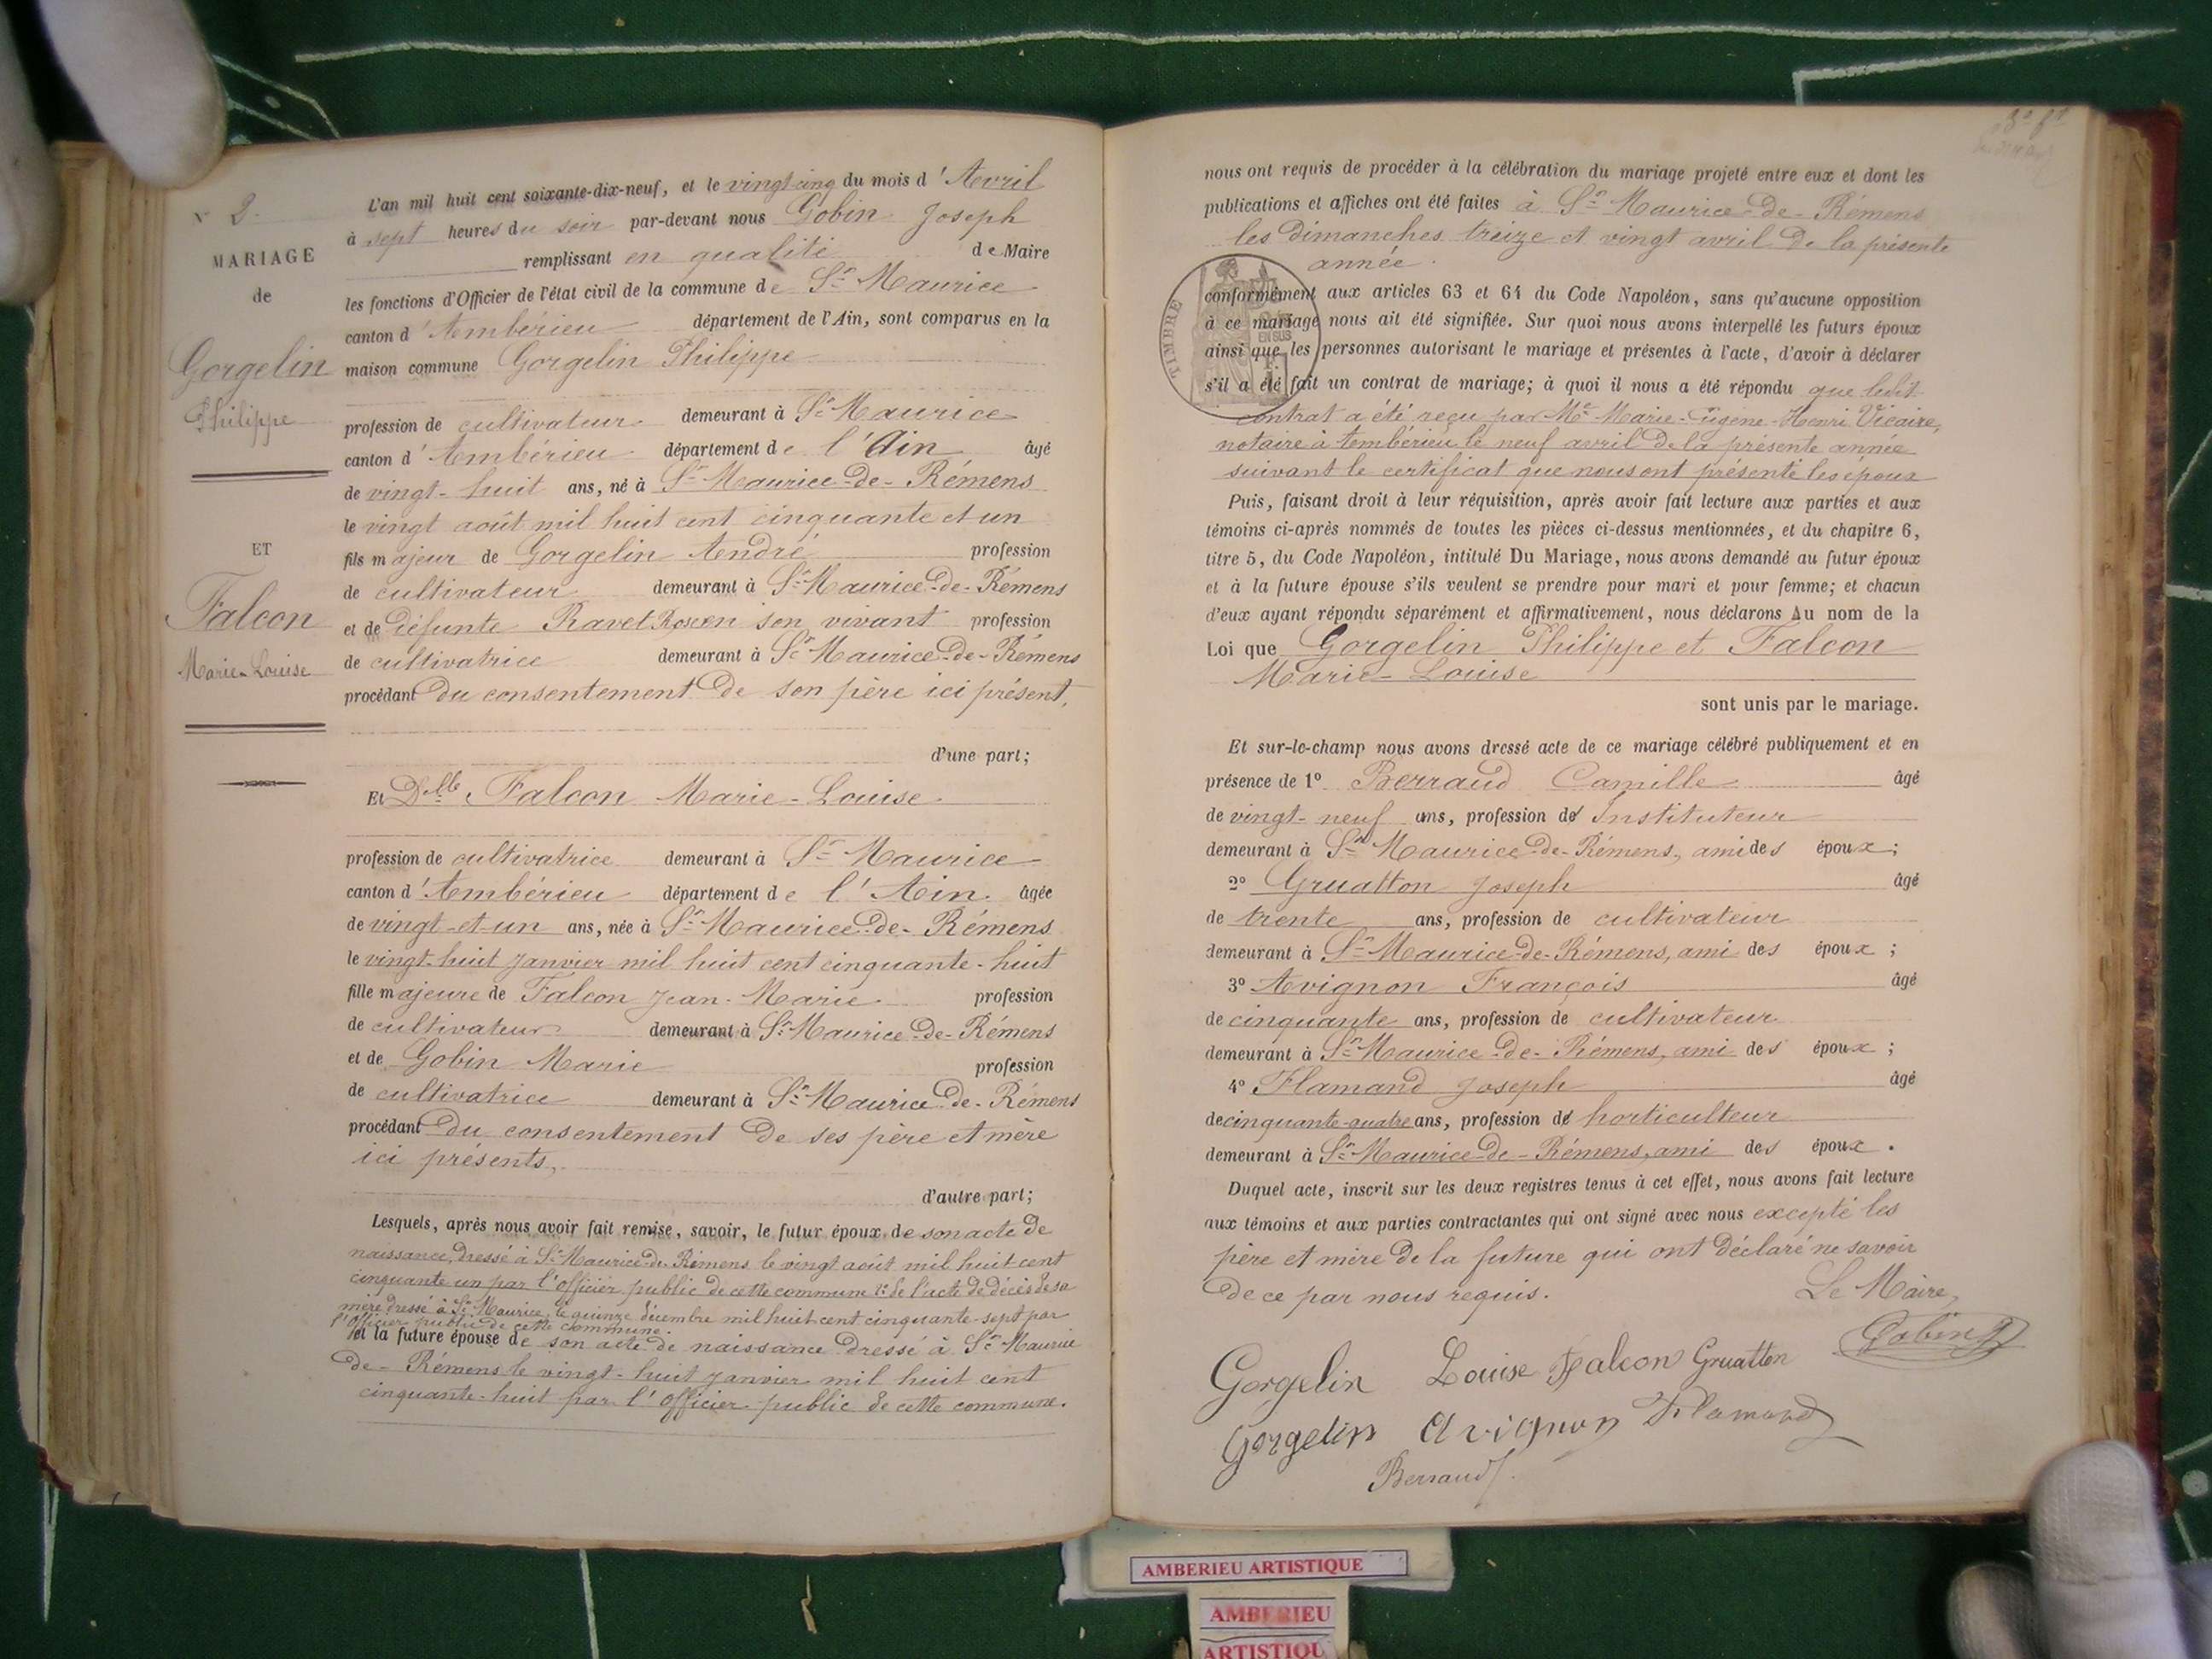 N° 2
MARIAGE
de
Gorgelin
Philippe
ET
Falcon
Marie-Louise
L'an mil huit cent soixante-dix-neuf, et le vingt-cinq du mois d'Avril
à sept heures du soir par-devant nous Gobin Joseph
remplissant en qualité de Maire
les fonctions d'Officier de l'état civil de la commune de St Maurice
canton d'Ambérieu département de l'Ain, sont comparus en la
maison commune Gorgelin Philippe
profession de cultivateur demeurant à St Maurice
canton d'Ambérieu département de l'Ain âgé
de vingt-huit ans, né à St Maurice-de-Rémens
le vingt août mil huit cent cinquante et un
fils majeur de Gorgelin André profession
de cultivateur demeurant à St Maurice-de-Rémens
et de défunte Ravet Rose en son vivant profession
de cultivatrice demeurant à St Maurice-de-Rémens
procédant du consentement de son père ici présent,
d'une part;
Et Delle Falcon Marie-Louise
profession de cultivatrice demeurant à St Maurice
canton d'Ambérieu département de l'Ain. âgée
de vingt-et-un ans, née à St Maurice-de-Rémens
le vingt-huit janvier mil huit cent cinquante-huit
fille majeure de Falcon Jean-Marie profession
de cultivateur demeurant à St Maurice-de-Rémens
et de Gobin Marie profession
de cultivatrice demeurant à St Maurice-de-Rémens
procédant du consentement de ses père et mère
ici présents,
d'autre part;
Lesquels, après nous avoir fait remise, savoir, le futur époux, de son acte de
naissance, dressé à St Maurice-de-Rémens le vingt août mil huit cent
cinquante un par l'officier public de cette commune 2° de l'acte de décès de sa
mère dressé à St Maurice, le quinze décembre mil huit cent cinquante-sept par
l'officier public de cette commune.
et la future épouse de son acte de naissance dressé à St Maurice
de-Rémens le vingt-huit janvier mil huit cent
cinquante-huit par l'officier public de cette commune.
nous ont requis de procéder à la célébration du mariage projeté entre eux et dont les
publications et affiches ont été faites à St Maurice-de-Rémens
les dimanches treize et vingt avril de la présente
année.
conformément aux articles 63 et 64 du Code Napoléon, sans qu'aucune opposition
à ce mariage nous ait été signifiée. Sur quoi nous avons interpellé les futurs époux
ainsi que les personnes autorisant le mariage et présentes à l'acte, d'avoir à déclarer
s'il a été fait un contrat de mariage; à quoi il nous a été répondu que ledit
contrat a été reçu par Me Marie-Eugène-Henri Vicaire,
notaire à Ambérieu le neuf avril de la présente année
suivant le certificat que nous ont présenté les époux
TIMBRE
EN SUS
Puis, faisant droit à leur réquisition, après avoir fait lecture aux parties et aux
témoins ci-après nommés de toutes les pièces ci-dessus mentionnées, et du chapitre 6,
titre 5, du Code Napoléon, intitulé Du Mariage, nous avons demandé au futur époux
et à la future épouse s'ils veulent se prendre pour mari et pour femme; et chacun
d'eux ayant répondu séparément et affirmativement, nous déclarons Au nom de la
Loi que Gorgelin Philippe et Falcon
Marie-Louise
sont unis par le mariage.
Et sur-le-champ nous avons dressé acte de ce mariage célébré publiquement et en
présence de 1° Berraud Camille âgé
de vingt-neuf ans, profession d' Instituteur
demeurant à St Maurice-de-Rémens, ami des époux;
2° Gruatton Joseph âgé
de trente ans, profession de cultivateur
demeurant à St Maurice-de-Rémens, ami des époux;
3° Avignon François âgé
de cinquante ans, profession de cultivateur
demeurant à St Maurice-de-Rémens, ami des époux;
4° Flamand Joseph âgé
de cinquante-quatre ans, profession d' horticulteur
demeurant à St Maurice-de-Rémens, ami des époux.
Duquel acte, inscrit sur les deux registres tenus à cet effet, nous avons fait lecture
aux témoins et aux parties contractantes qui ont signé avec nous excepté les
père et mère de la future qui ont déclaré ne savoir
de ce par nous requis.
Le Maire,
Gobin J
Gorgelin Louise Falcon Gruatton
Gorgelin Avignon Flamand
Berraud
AMBERIEU ARTISTIQUE
AMBERIEU
ARTISTIQU